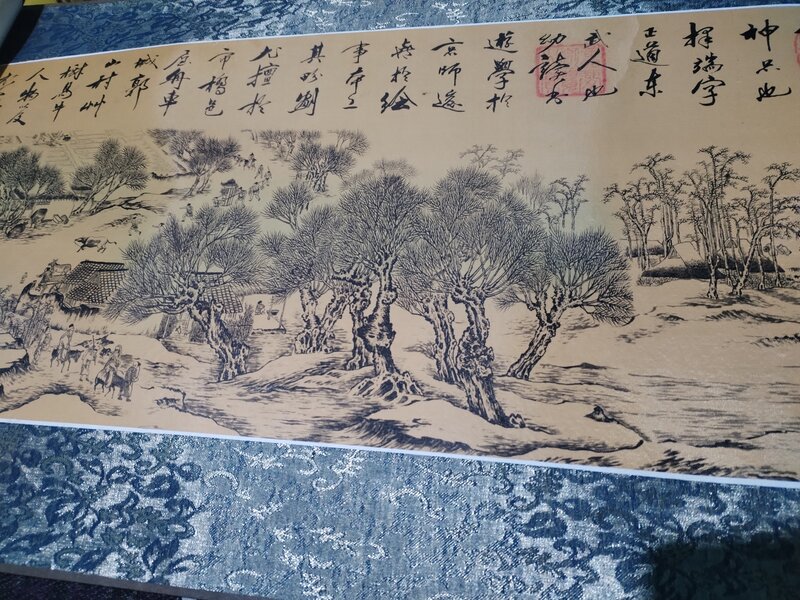 神品也
擇端字
正道東
武人也
幼讀書
遊學於
京師後
喜於繪
事本工
其劃
尤擅於
市橋
屋舟車
城郭
山村艸
樹馬牛
人物及